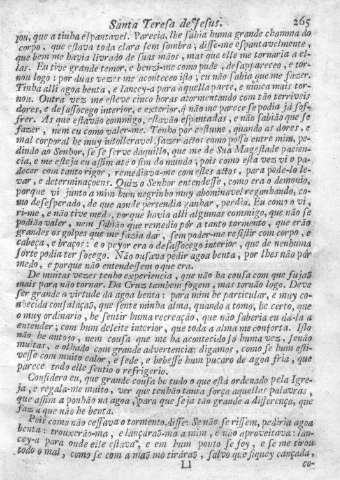 Santa Teresa de Jesus. 265
you, que a tinha espantavel. Parecia, lhe sahia huma grande chamma do
corpo, que estava toda clara sem sombra; disse-me espantavelmente,
que bem me havia livrado de suas mãos, mas que elle me tornaria a el-
las. Eu tive grande temor, e benzi-me como pude, desappareceo, e tor-
nou logo: por duas vezes me aconteceo isto, eu não sabia que me fazer.
Tinha alli agoa benta, e lancey-a para aquella parte, e nunca mais tor-
nou. Outra vez me esteve cinco horas atormentando com tão terriveis
dores, e desassocego interior, e exterior, q̃ não me parece se podia já sof-
frer. As que estavão commigo, estavão espantadas, e não sabião que se
fazer, nem eu como valer-me. Tenho por costume, quando as dores, e
mal corporal he muy intolleravel, fazer actos como posso entre mim, pe-
dindo ao Senhor, se se serve daquillo, que me dê Sua Magestade pacien-
cia, e me esteja eu assim até o fim do mundo; pois como esta vez vi o pa-
decer com tanto rigor, remediava-me com estes actos, para pode-lo le-
var, e determinaçoens. Quiz o Senhor entendesse, como era o demonio,
porque vi junto a mim hum negrinho muy abominavel reganhando, co-
mo desesperado, de que aonde pertendia ganhar, perdia. Eu como o vi,
ri-me, e não tive medo, porque havia alli algumas commigo, que não se
podião valer, nem sabião que remedio pôr a tanto tormento, que erão
grandes os golpes que me fazia dar, sem poder-me resistir com corpo, e
cabeça, e braços: e o peyor era o desassocego interior, que de nenhuma
sorte podia ter socego. Não ousava pedir agoa benta, por lhes não pôr
medo, e porque não entendessem o que era.
De muitas vezes tenho experiencia, que não ha cousa com que fujaõ
mais para não tornar. Da Cruz tambem fogem, mas tornão logo. Deve
ser grande a virtude da agoa benta: para mim he particular, e muy co-
nhecida consolação, que sente minha alma, quando a tomo, he certo, que
o muy ordinario, he sentir huma recreação, que não saberia eu da-la a
entender, com hum deleite interior, que toda a alma me conforta. Isto
não he antojo, nem cousa que me ha acontecido só huma vez, senão
muitas, e olhado com grande advertencia: digamos, como se hum esti-
vesse com muito calor, e sede, e bebesse hum pucaro de agoa fria, que
parece todo elle sentio o refrigerio.
Considero eu, que grande cousa he tudo o que está ordenado pela Igre-
ja, e regala-me muito, ver que tenhão tanta força aquellas palavras,
que assim a ponhão na agoa, para que seja tão grande a differença, que
faz a que não he benta.
Pois como não cessava o tormento, disse: Se não se rissem, pediria agoa
benta: trouxerão-ma, e lançaraõ-ma a mim, e não aproveitava: lan-
cey-a para onde elle estava, e em hum ponto se foy, e se me tirou
todo o mal, como se com a mão mo tiràraõ, salvo que fiquey cançada,
Ll co-